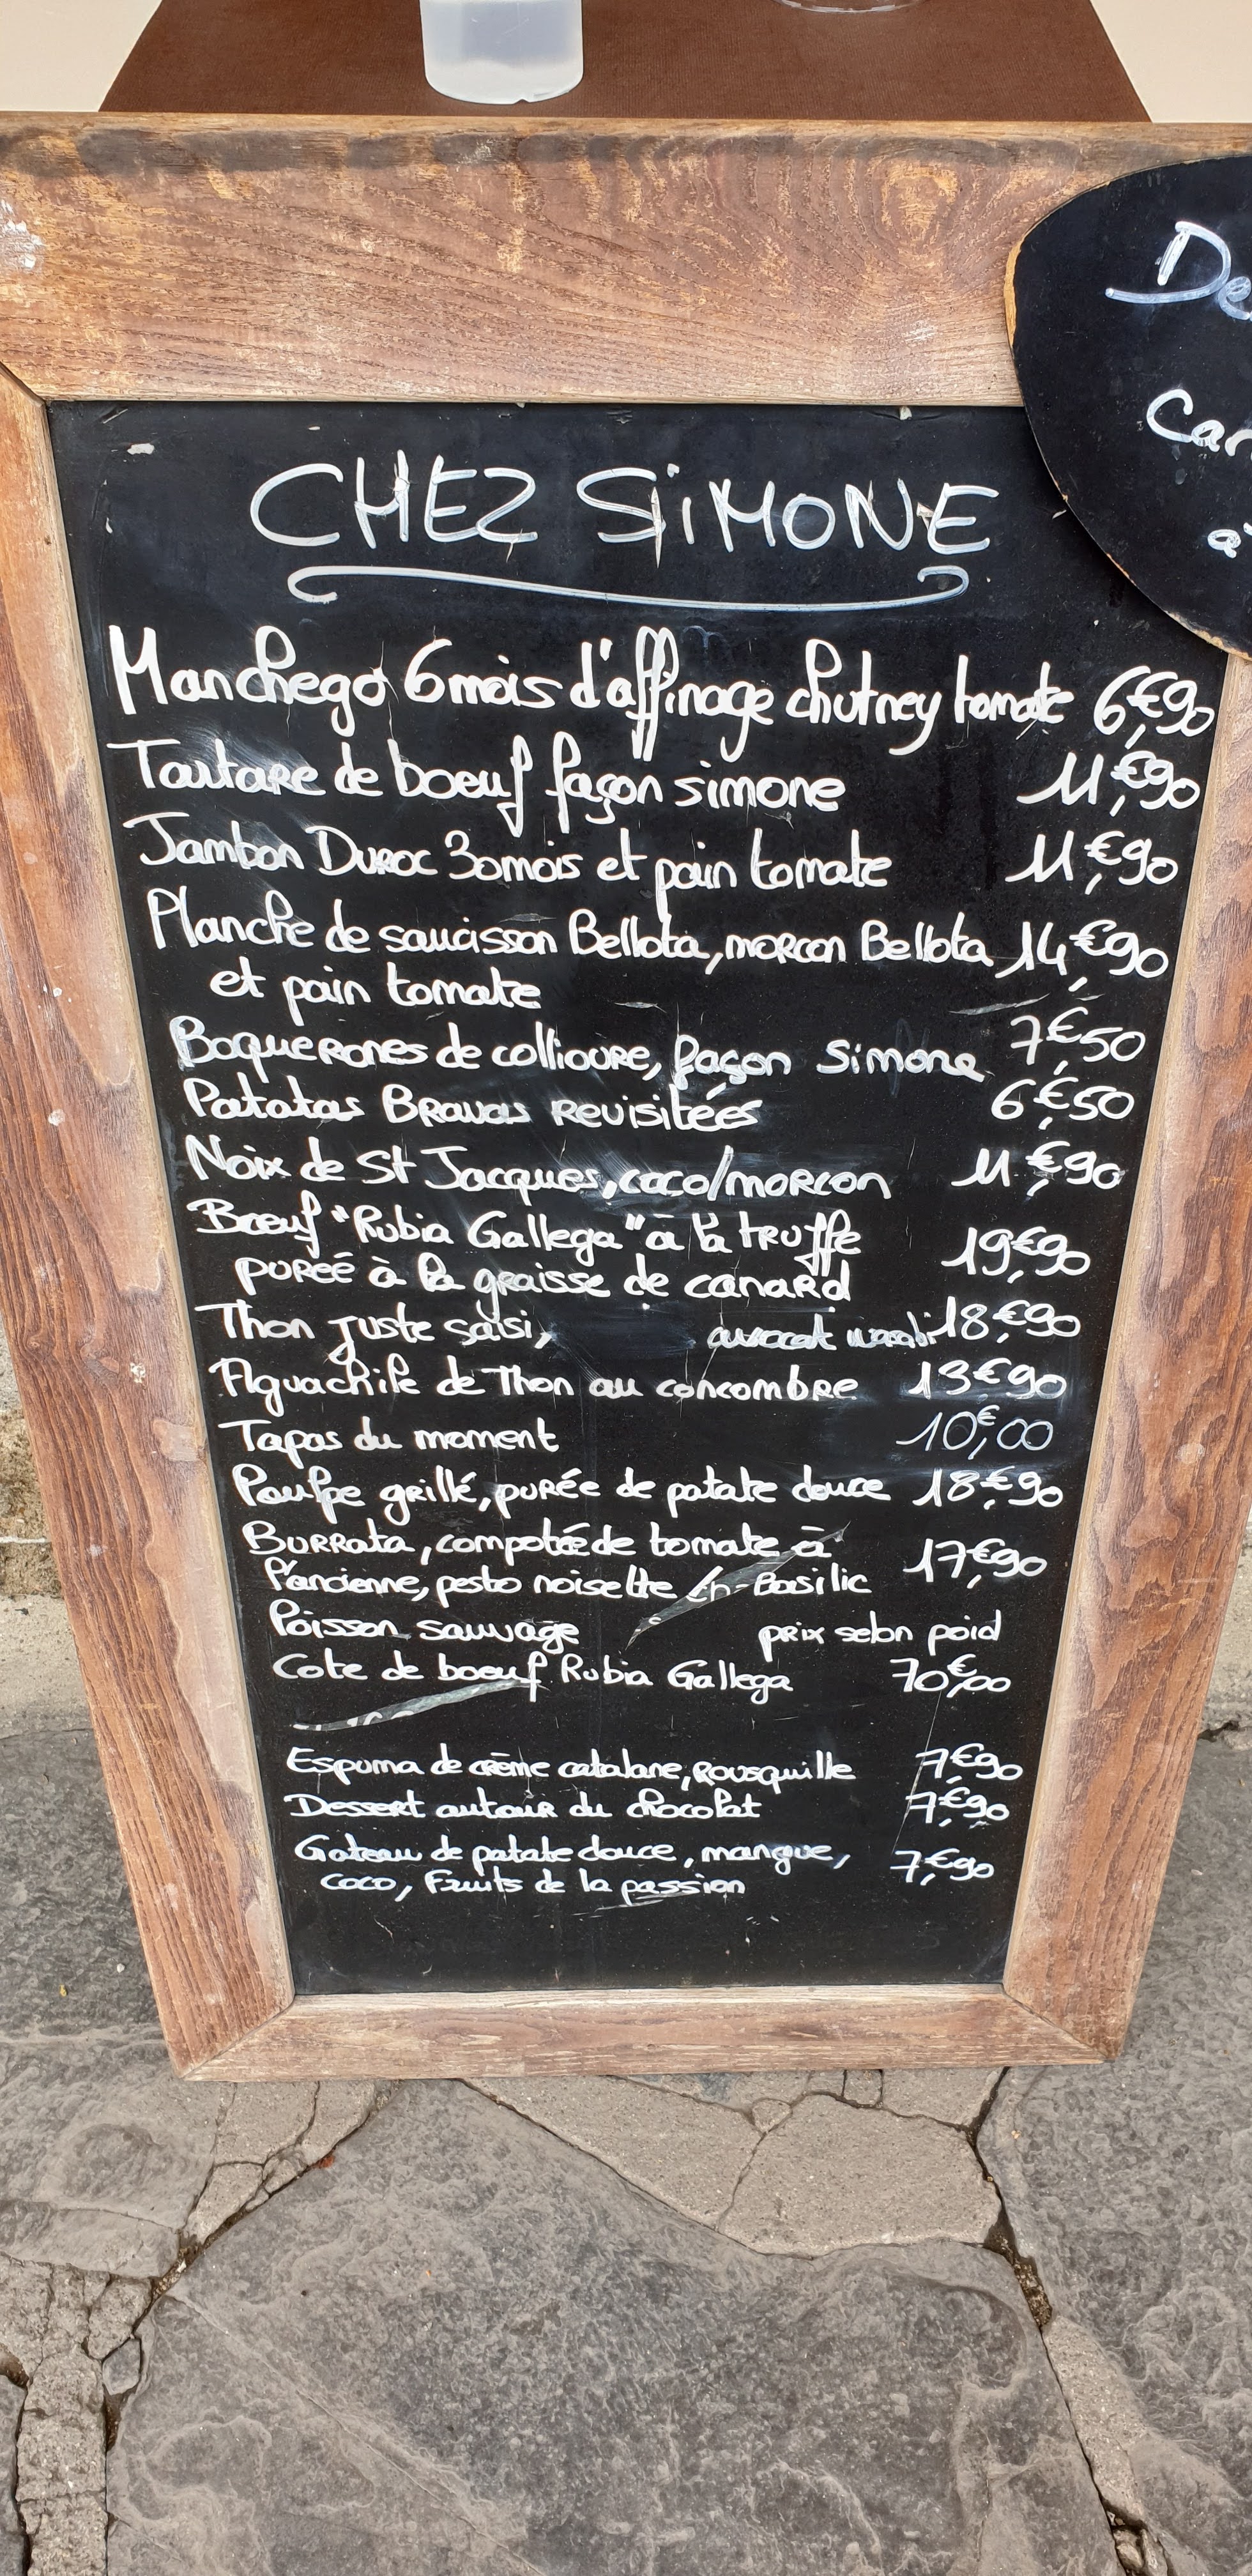 De
Car
a
CHEZ SiMONE
Manchego 6 mois d'affinage chutney tomate 6,€90
Tartare de boeuf façon simone 11,€90
Jambon Duroc 30mois et pain tomate 11,€90
Planche de saucisson Bellota, morcon Bellota 14,€90
et pain tomate
Boquerones de collioure, façon Simone 7,€50
Patatas Bravas revisitées 6,€50
Noix de St Jacques, coco/morcon 11,€90
Bœuf "Rubia Gallega" à la truffe
purée à la graisse de canard 19,€90
Thon juste saisi, avocat wasabi 18,€90
Aguachile de Thon au concombre 13,€90
Tapas du moment 10,€00
Poulpe grillé, purée de patate douce 18,€90
Burrata, compotée de tomate à
l'ancienne, pesto noisette Basilic 17,€90
Poisson sauvage prix selon poid
Cote de boeuf Rubia Gallega 70,€00
Espuma de crème catalane, Rousquille 7,€90
Dessert autour du chocolat 7,€90
Gateau de patate douce, mangue,
coco, Fruits de la passion 7,€90